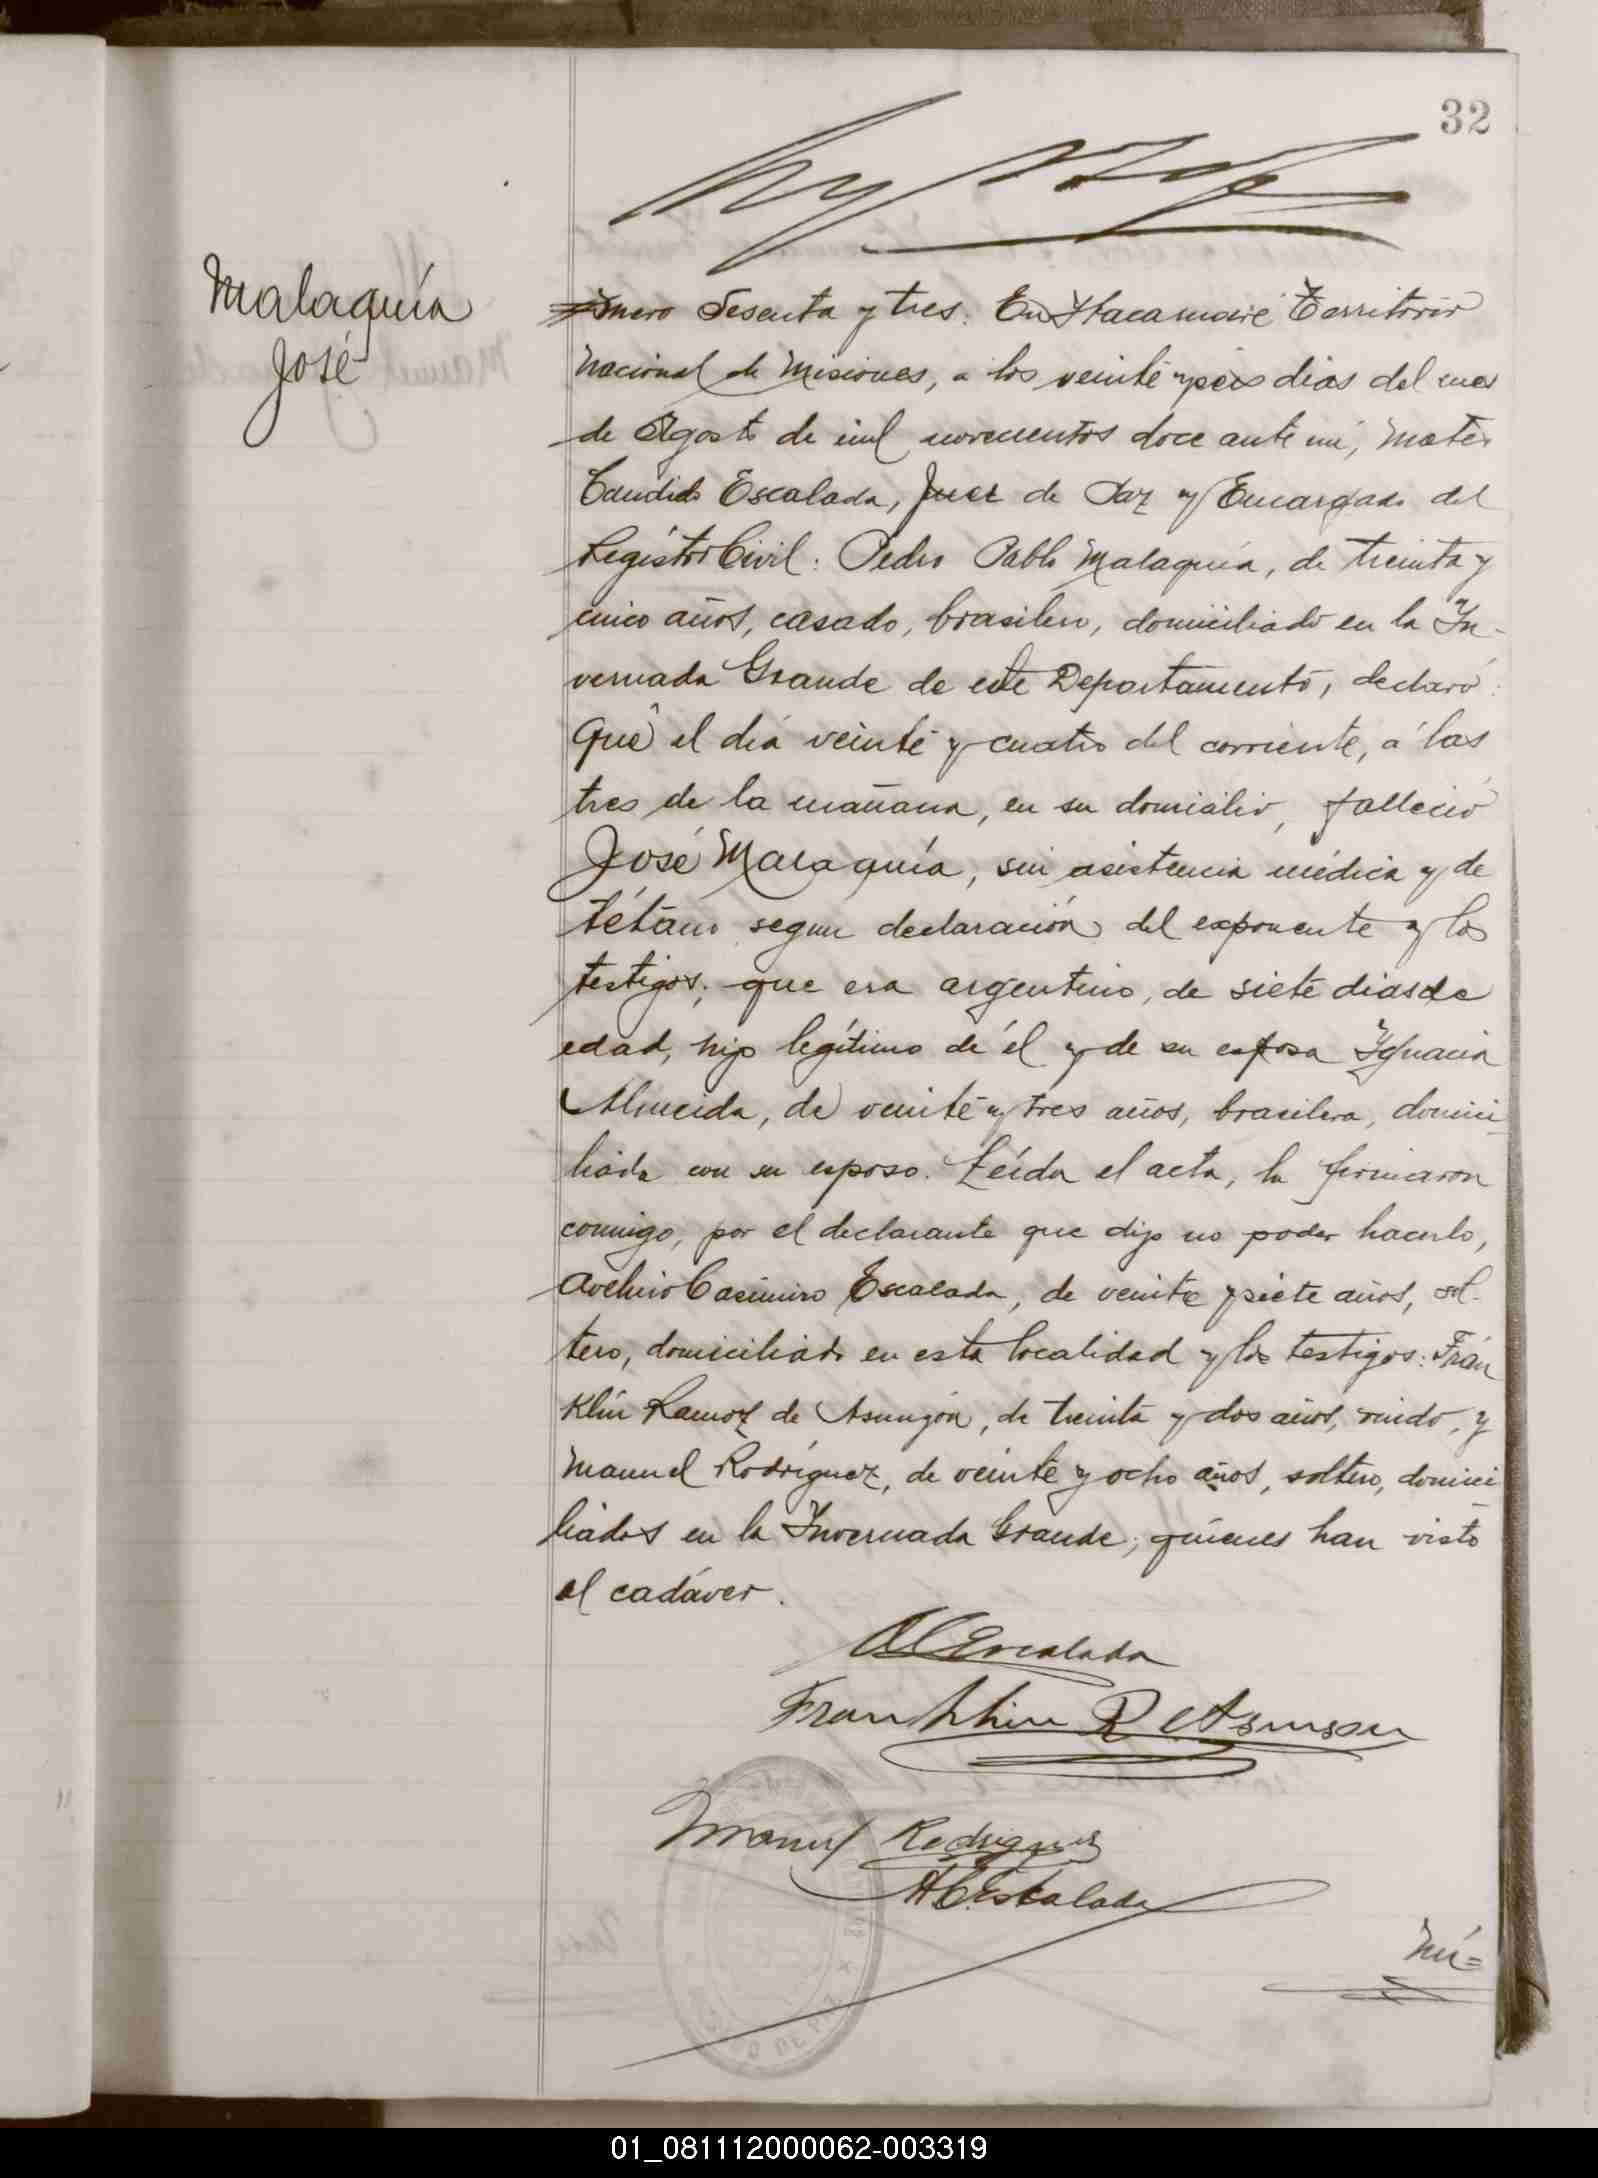 32
Malaquía
José
mero Sesenta y tres. En Itacaruaré Territorio
Nacional de Misiones, a los veinte y seis dias del mes
de Agosto de mil novecientos doce ante mí, Mateo
Candido Escalada, Juez de Paz y Encargado del
Registro Civil: Pedro Pablo Malaquía, de treinta y
cinco años, casado, brasilero, domiciliado en la In-
vernada Grande de este Departamento, declaró:
Que el día veinte y cuatro del corriente, á las
tres de la mañana, en su domicilio, falleció
José Malaquía, sin asistencia médica y de
tétano segun declaración del exponente y los
testigos; que era argentino, de siete dias de
edad, hijo legítimo de él y de su esposa Ignacia
Almeida, de veinte y tres años, brasilera, domici-
liada con su esposo. Leída el acta, la firmaron
conmigo, por el declarante que dijo no poder hacerlo,
Avelino Casimiro Escalada, de veinte y siete años, sol-
tero, domiciliado en esta localidad y los testigos: Fran
Klin Ramoz de Asunçon, de treinta y dos años, viudo, y
Manuel Rodríguez, de veinte y ocho años, soltero, domici
liados en la Invernada Grande; quienes han visto
el cadáver.
A C Escalada
Franklin R Asunson
Manuel Rodriguez
M C Escalada
Nú=
01_081112000062-003319